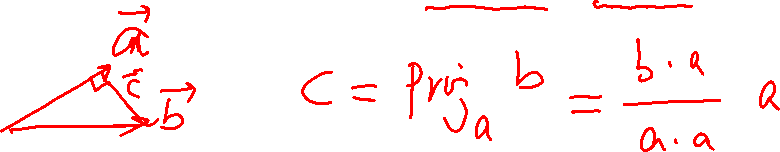 a⃗
c⃗
b⃗
c = Proj_a b = \frac{b · a}{a · a} a